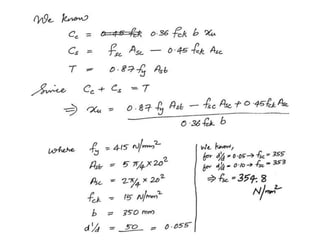 We know
Cc = 0.45 fck 0.36 fck b xu
Cs = fsc Asc - 0.45 fck Asc
T = 0.87 fy Ast
Since Cc + Cs = T
⇒ xu = 0.87 fy Ast - fsc Asc + 0.45 fck Asc
0.36 fck b
where fy = 415 N/mm²
Ast = 5 π/4 × 20²
Asc = 2π/4 × 20²
fck = 15 N/mm²
b = 350 mm
d'/d = 50 = 0.055
We know,
for d'/d = 0.05 → fsc = 355
for d'/d = 0.10 → fsc = 353
⇒ fsc = 354.8
N/mm²